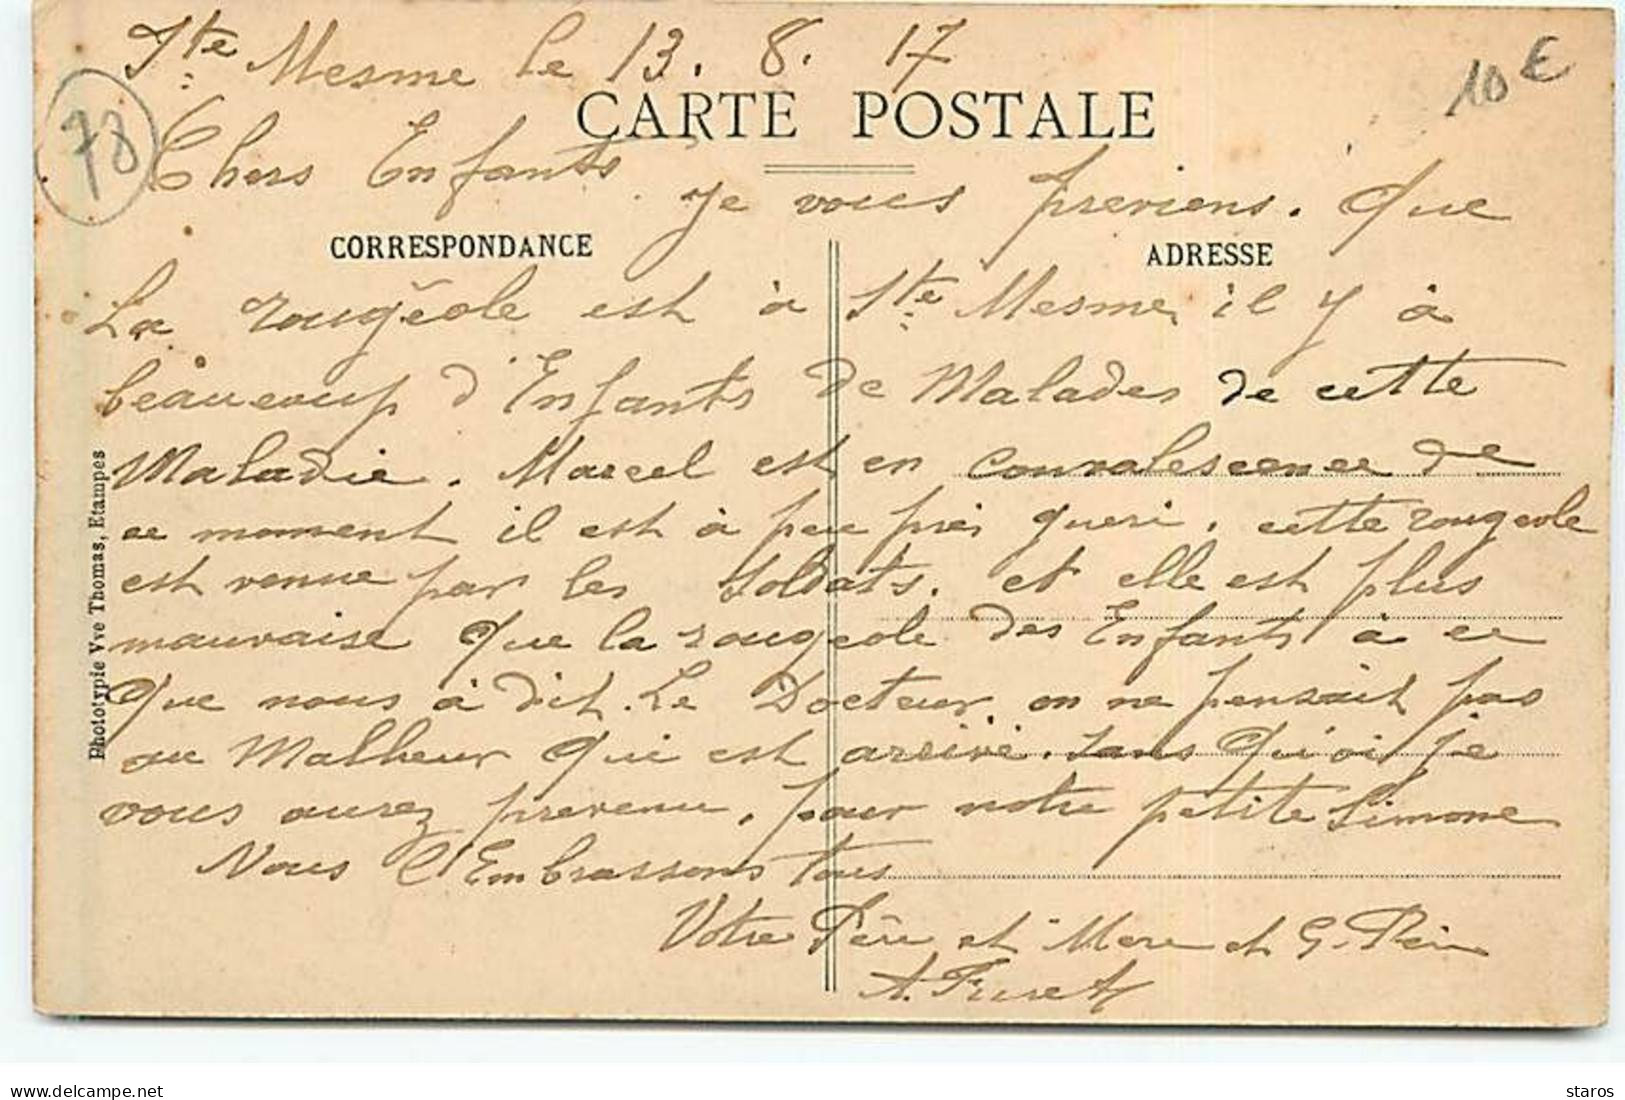 Ste Mesme le 13. 8. 17
10 €
78
CARTE POSTALE
Chers Enfants
je vous previens. Que
CORRESPONDANCE
ADRESSE
La rougéole est à Ste Mesme, il y à
beaucoup d'Enfants de Malades de cette
Maladie. Marcel est en convalescence de
ce moment il est à peu près queri. cette rougeole
est venue par les Soldats. et elle est plus
mauvaise Que la rougeole des Enfants à ce
Que nous à dit. Le Docteur on ne pensait pas
au Malheur Qui est arrivé. sans Qu'oi je
vous aurez prevenu. pour notre petite Simone
Nous l'Embrassons tous
Votre Père et Mere et G. Père
A. Furet
Phototypie Vve Thomas, Etampes
www.delcampe.net
staros